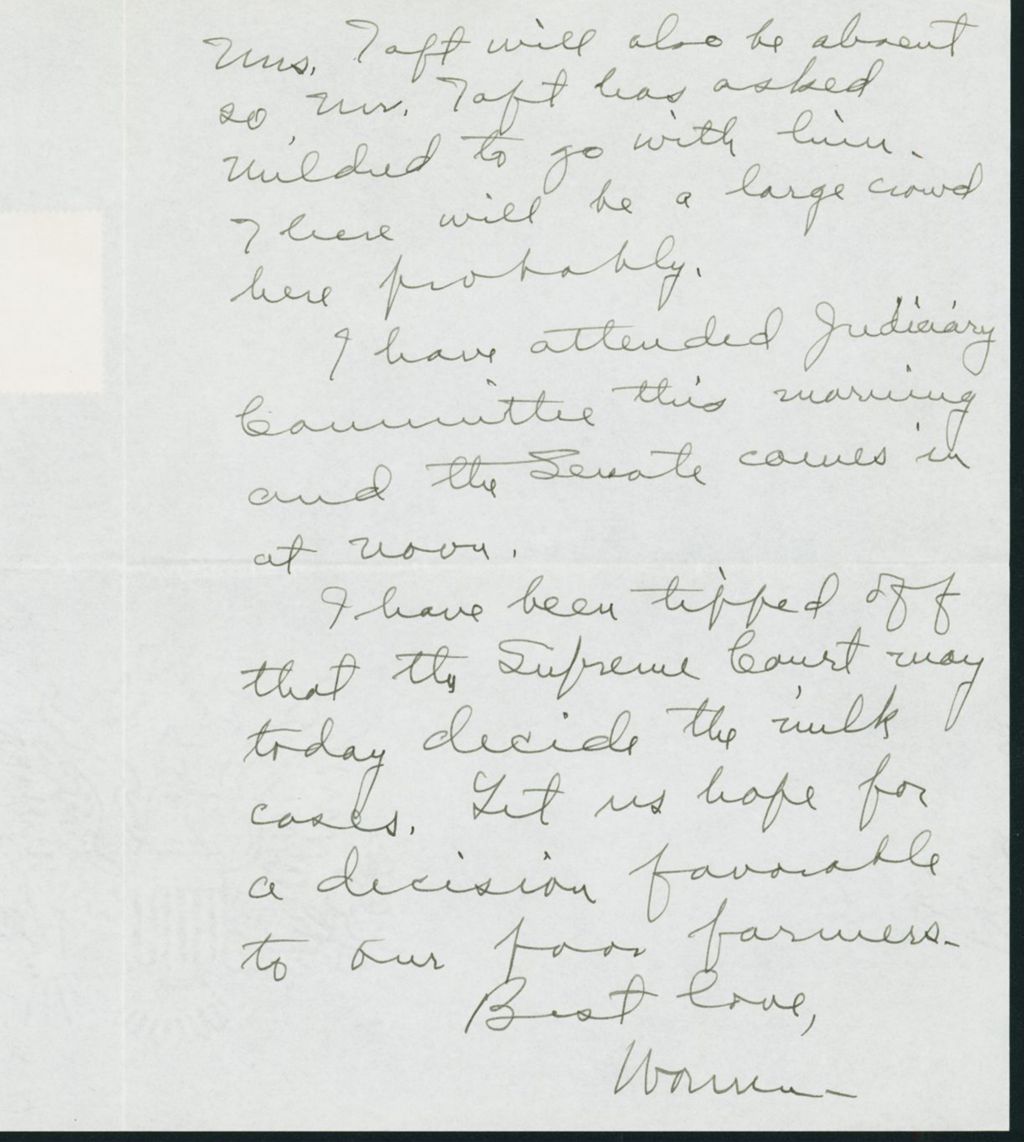 Mrs. Taft will also be absent
so Mr. Taft has asked
Mildred to go with him.
There will be a large crowd
here probably.
I have attended Judiciary
Committee this morning
and the Senate comes in
at noon.
I have been tipped off
that the Supreme Court may
today decide the milk
cases. Let us hope for
a decision favorable
to our poor farmers.
Best love,
Warren